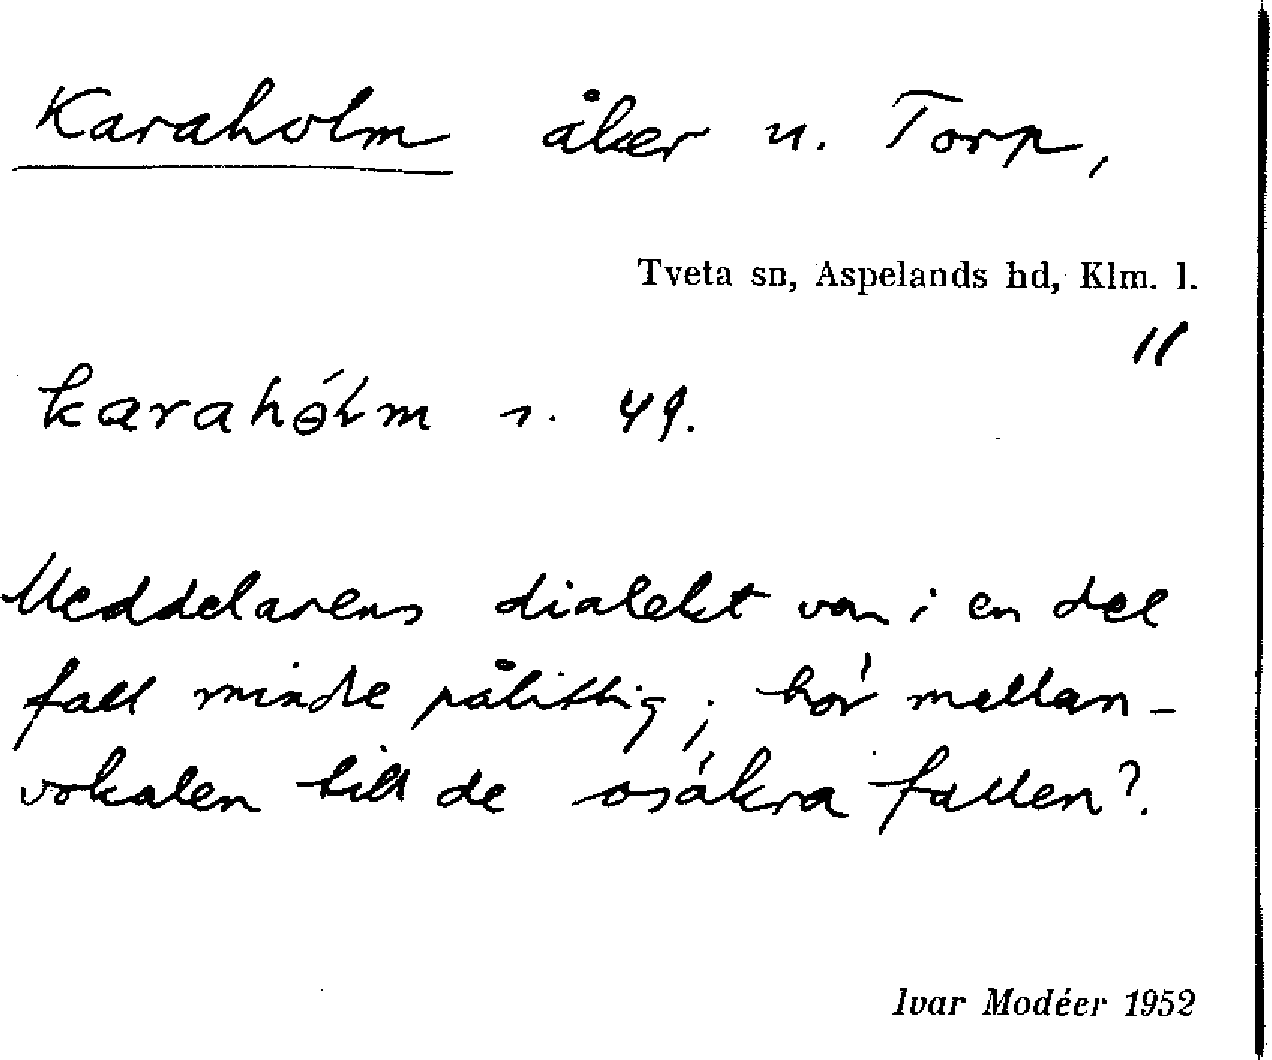 Karaholm åker u. Torp,
Tveta sn, Aspelands hd, Klm. l.
"
karahɵ́lm s. 49.
Meddelarens dialekt var i en del
fall mindre pålitlig; hör mellan-
vokalen till de osäkra fallen?.
Ivar Modéer 1952